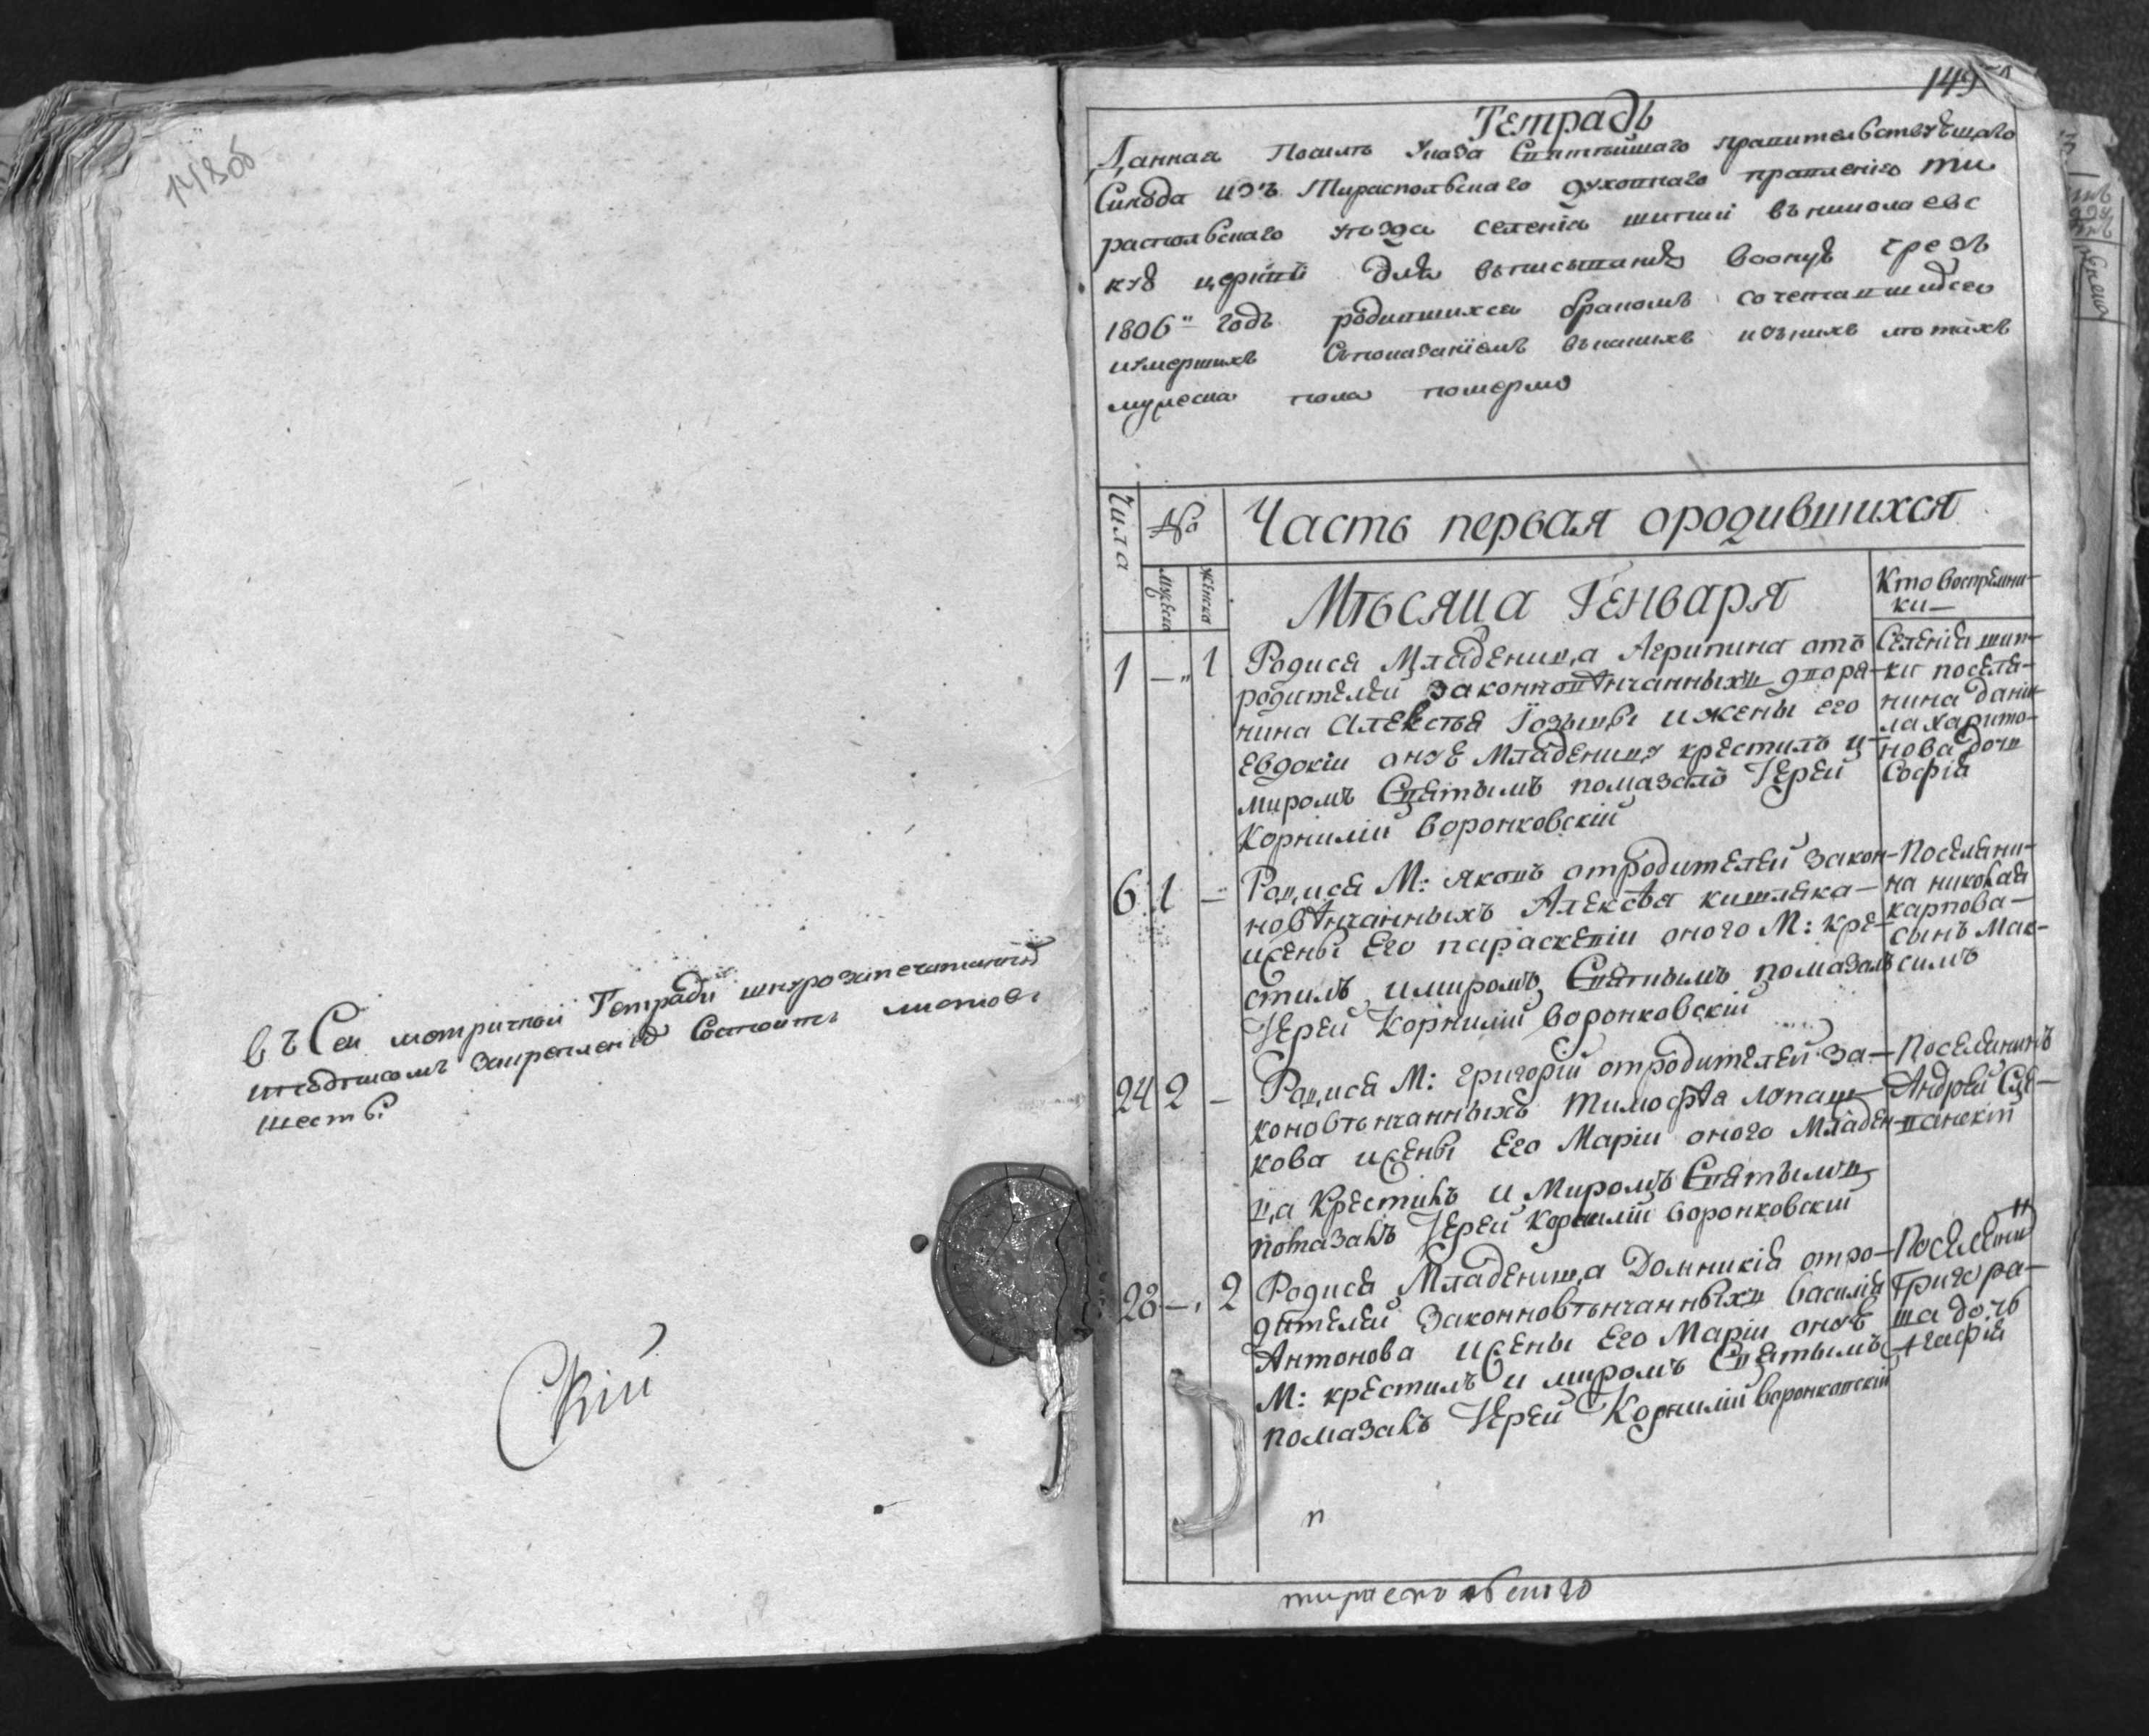 148об
въ Сеи метричной Тетради шнурозапечатанной
иподписомъ закрепленной Состоитъ листовъ
шесть
Скій
149
Тетрадь
Данная Посилѣ Указа Святѣйшаго правительствующаго
Синода изъ Тираспольскаго духовнаго правленія ти
распольскаго уѣзда селенія шипки вниколаевс
кую церквй для вписыванія воону чрезъ
1806" годъ родившихся бракомъ сочетавшихся
иумершихъ Съпоказаніемъ въкакихъ изънихъ лѣтахъ
мужеска пола померло
Числа
№
Часть первая ородившихся
Мужеска
Женска
Мѣсяца Генваря
Кто восприемни-
ки-
1 - 1
Родися Младеница Агрипина отъ
родителей законновѣнчанныхъ дворя-
нина Алексѣя и жены его
Евдокіи онуе Младеницу крестилъ и
миромъ Святымъ помазалъ Іерей
Корнилій Воронковскій
Селенія шип-
ки поселя-
нина дани-
ла харито-
нова дочь
Софія
6 1 -
Родися М: Яковъ отродителей закон-
новѣнчанныхъ Алексѣя кишляка-
ижены Его параскевіи оного М: кре-
стилъ имиромъ Святымъ помазалъ
Іерей Корнилій Воронковскій
Поселяни-
на николая
карпова-
сынъ Мак-
симъ
24 2 -
Родися М: Григорій отродителей за-
коновѣнчанныхъ Тимофѣя лопаш-
кова ижены Его Маріи оного Младен-
ца Крестилъ и Миромъ Святымъ
помазалъ Іерей Корнилій Воронковскій
Поселянинъ
Андрей
28 - 2
Родися Младеница Домникія отро-
дителей Законновѣнчанныхъ Василія
Антонова ижены Его Маріи онуе
М: крестилъ и миромъ Святымъ
помазалъ Іерей Корнилій Воронковскій
Григора-
ша дочь
Агафія
п
тираспольскаго